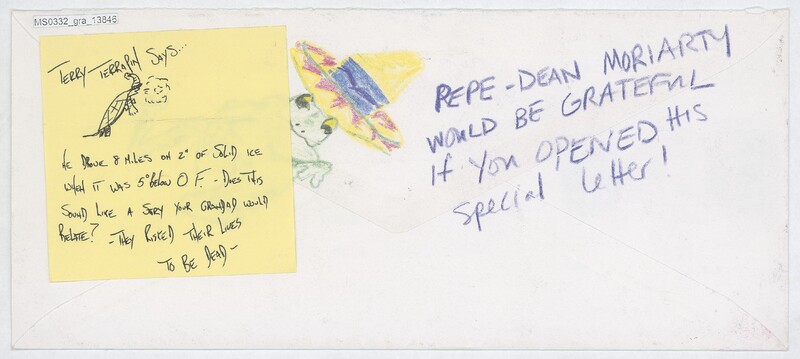 MS0332_gra_13846
TERRY TERRAPIN SAYS...
WE DROVE 8 MILES ON 2" OF SOLID ICE
WHEN IT WAS 5° BELOW 0 F. - DOES THIS
SOUND LIKE A STORY YOUR GRANDAD WOULD
RELATE? - THEY RISKED THEIR LIVES
TO BE DEAD -
PEPE-DEAN MORIARTY
WOULD BE GRATEFUL
If You OPENED HIS
Special Letter!